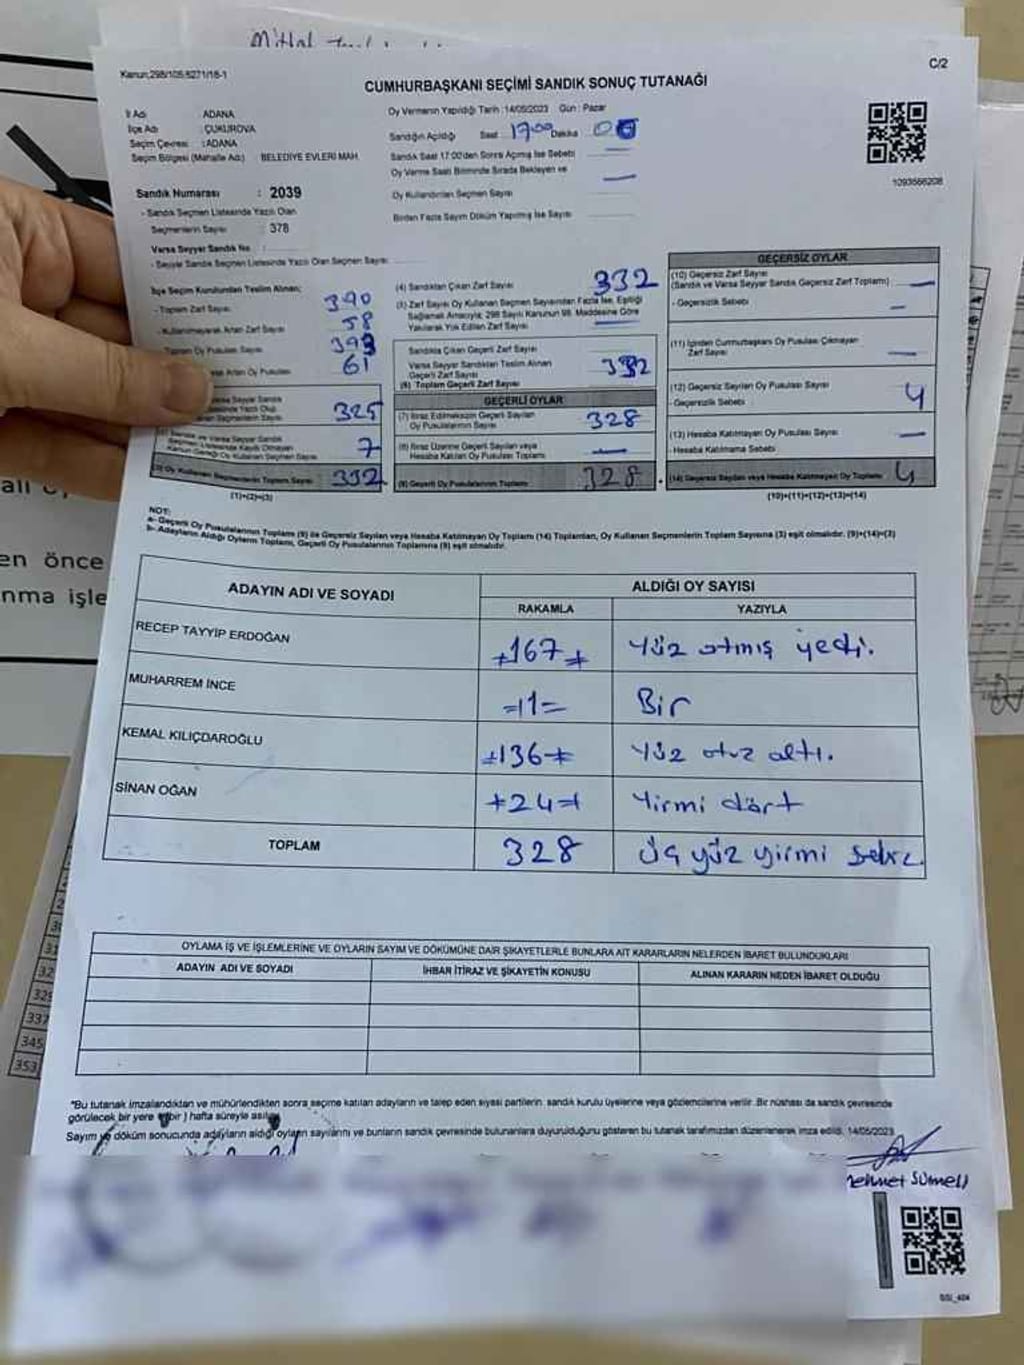 Kanun;298/105;6271/18-1
C/2
CUMHURBAŞKANI SEÇİMİ SANDIK SONUÇ TUTANAĞI
İl Adı : ADANA
İlçe Adı : ÇUKUROVA
Seçim Çevresi : ADANA
Seçim Bölgesi (Mahalle Adı) BELEDİYE EVLERİ MAH.
Sandık Numarası : 2039
- Sandık Seçmen Listesinde Yazılı Olan
Seçmenlerin Sayısı : 378
Varsa Seyyar Sandık No :
- Seyyar Sandık Seçmen Listesinde Yazılı Olan Seçmen Sayısı
Oy Vermenin Yapıldığı Tarih : 14/05/2023 Gün : Pazar
Sandığın Açıldığı Saat 17:00 Dakika
Sandık Saat 17:00'den Sonra Açılmış İse Sebebi
Oy Verme Saati Bitiminde Sırada Bekleyen ve
Oy Kullandırılan Seçmen Sayısı
Birden Fazla Sayım Döküm Yapılmış İse Sayısı
1093566208
İlçe Seçim Kurulundan Teslim Alınan;
- Toplam Zarf Sayısı 390
- Kullanılmayarak Artan Zarf Sayısı 58
Toplam Oy Pusulası Sayısı 393
Artan Oy Pusulası 61
325
7
(3) Oy Kullanan Seçmenlerin Toplam Sayısı 332
(1)+(2)=(3)
(4) Sandıktan Çıkan Zarf Sayısı 332
(5) Zarf Sayısı Oy Kullanan Seçmen Sayısından Fazla İse, Eşitliği
Sağlamak Amacıyla; 298 Sayılı Kanunun 98. Maddesine Göre
Yakılarak Yok Edilen Zarf Sayısı
Sandıkta Çıkan Geçerli Zarf Sayısı
Varsa Seyyar Sandıktan Teslim Alınan
Geçerli Zarf Sayısı
(6) Toplam Geçerli Zarf Sayısı 332
GEÇERLİ OYLAR
(7) İtiraz Edilmeksizin Geçerli Sayılan
Oy Pusulalarının Sayısı 328
(8) İtiraz Üzerine Geçerli Sayılan veya
Hesaba Katılan Oy Pusulası Toplamı
(9) Geçerli Oy Pusulalarının Toplamı 328
GEÇERSİZ OYLAR
(10) Geçersiz Zarf Sayısı
(Sandık ve Varsa Seyyar Sandık Geçersiz Zarf Toplamı)
- Geçersizlik Sebebi
(11) İçinden Cumhurbaşkanı Oy Pusulası Çıkmayan
Zarf Sayısı
(12) Geçersiz Sayılan Oy Pusulası Sayısı 4
- Geçersizlik Sebebi
(13) Hesaba Katılmayan Oy Pusulası Sayısı
- Hesaba Katılmama Sebebi
(14) Geçersiz Sayılan veya Hesaba Katılmayan Oy Toplamı 4
(10)+(11)+(12)+(13)=(14)
NOT:
a- Geçerli Oy Pusulalarının Toplamı (9) ile Geçersiz Sayılan veya Hesaba Katılmayan Oy Toplamı (14) Toplamları, Oy Kullanan Seçmenlerin Toplam Sayısına (3) eşit olmalıdır. (9)+(14)=(3)
b- Adayların Aldığı Oyların Toplamı, Geçerli Oy Pusulalarının Toplamına (9) eşit olmalıdır.
ADAYIN ADI VE SOYADI
ALDIĞI OY SAYISI
RAKAMLA YAZIYLA
RECEP TAYYİP ERDOĞAN 167 Yüz atmış yedi.
MUHARREM İNCE =1= Bir
KEMAL KILIÇDAROĞLU 136 Yüz otuz altı.
SİNAN OĞAN 24 Yirmi dört
TOPLAM 328 Üç yüz yirmi sekiz.
OYLAMA İŞ VE İŞLEMLERİNE VE OYLARIN SAYIM VE DÖKÜMÜNE DAİR ŞİKAYETLERLE BUNLARA AİT KARARLARIN NELERDEN İBARET BULUNDUKLARI
ADAYIN ADI VE SOYADI İHBAR İTİRAZ VE ŞİKAYETİN KONUSU ALINAN KARARIN NEDEN İBARET OLDUĞU
"Bu tutanak imzalandıktan ve mühürlendikten sonra seçime katılan adayların ve talep eden siyasi partilerin, sandık kurulu üyelerine veya gözlemcilerine verilir. Bir nüshası da sandık çevresinde
görülecek bir yere (bir) hafta süreyle asılır.
Sayım ve döküm sonucunda adayların aldığı oyların sayılarını ve bunların sandık çevresinde bulunanlara duyurulduğunu gösteren bu tutanak tarafımızdan düzenlenerek imza edildi. 14/05/2023
Mehmet Sümeli
en önce
nma işle
337
345
353